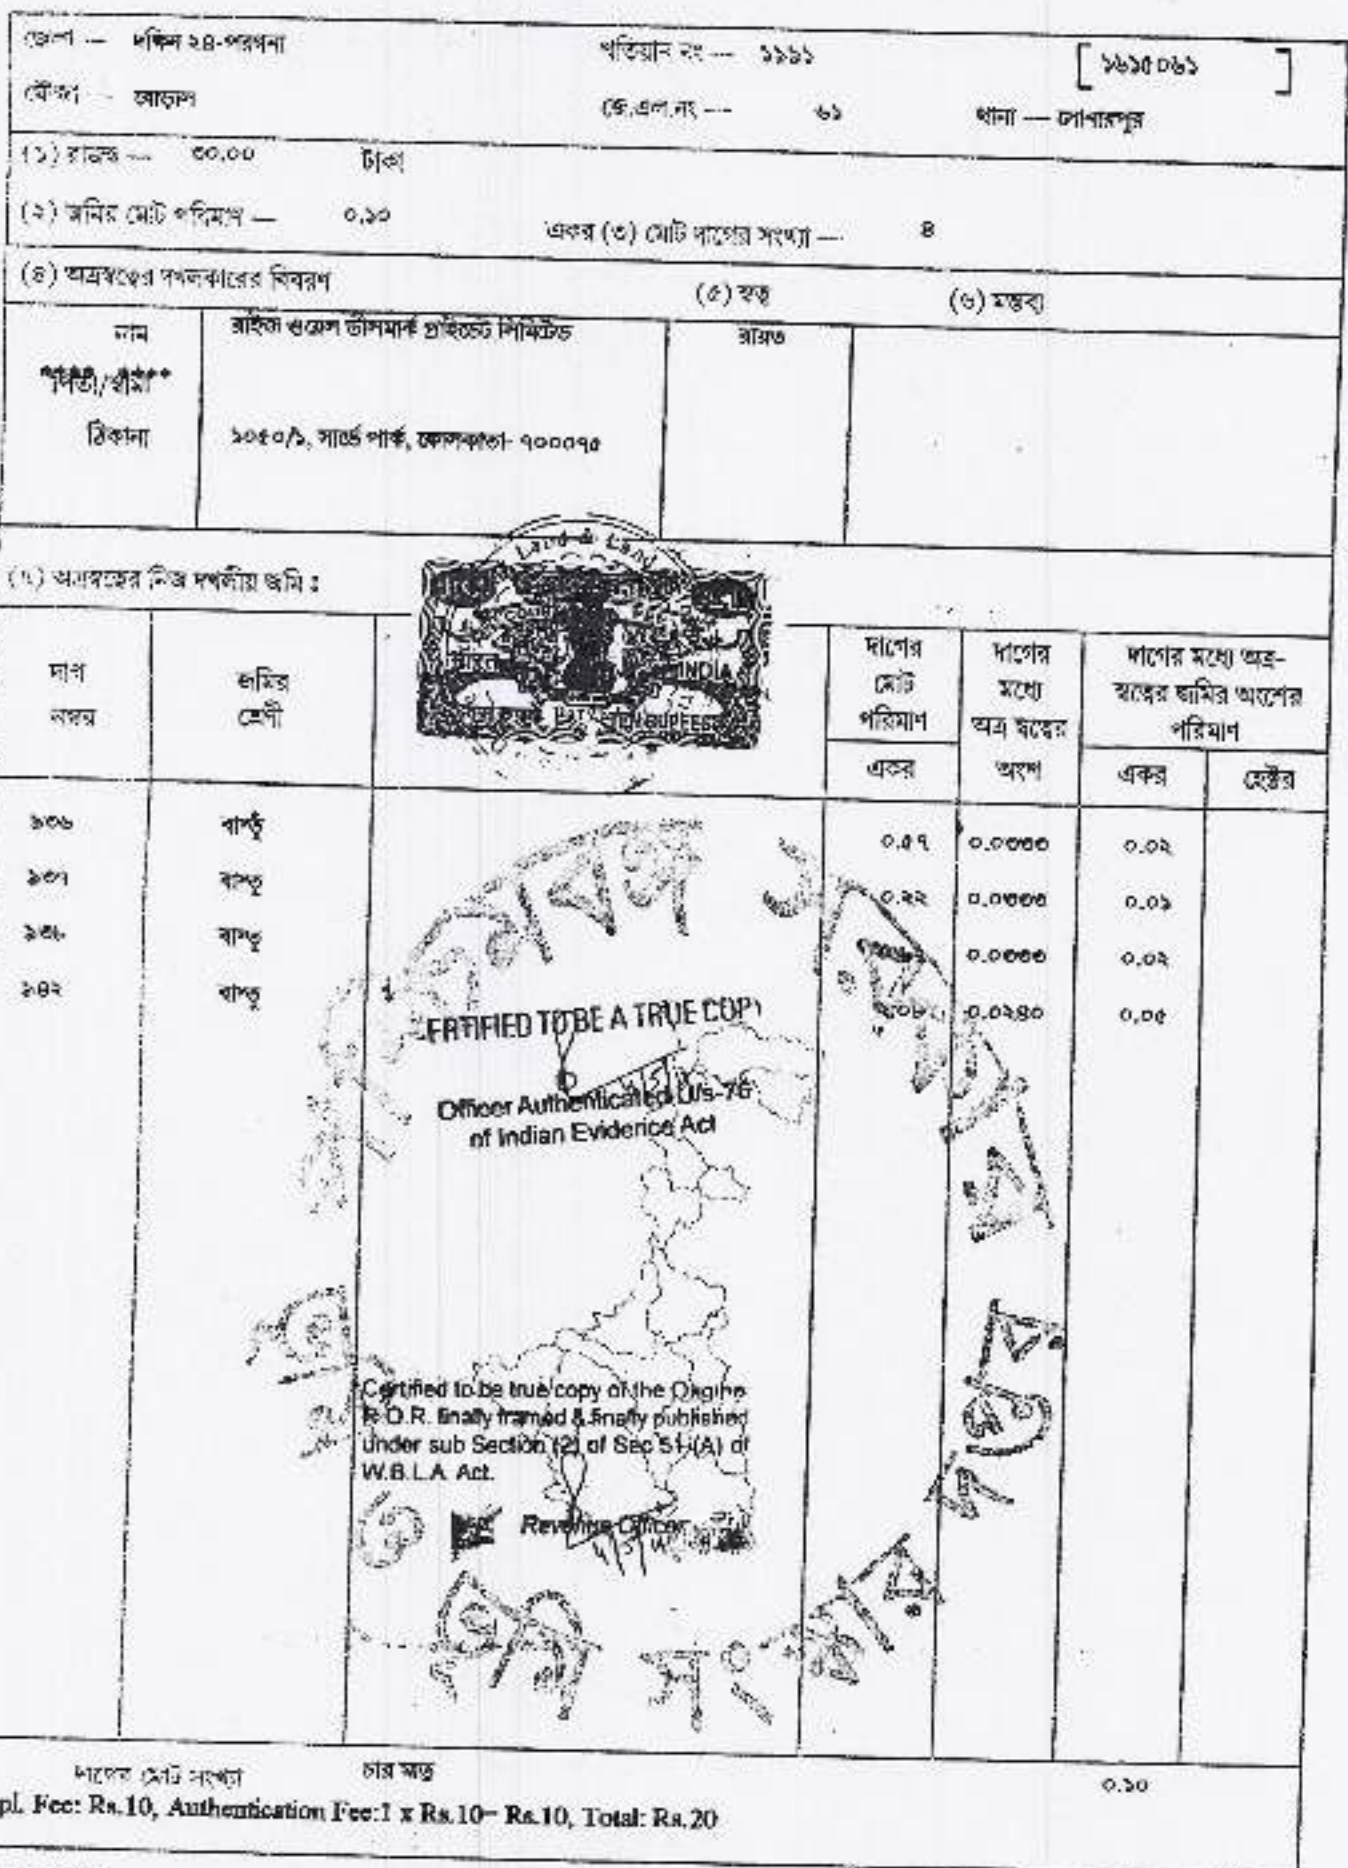 জেলা — দক্ষিন ২৪-পরগনা খতিয়ান নং — ১৯৯১ [ ১৬১৫০৬১ ]
মৌজা — বোড়াল জে.এল.নং — ৬১ থানা — সোনারপুর
(১) রাজস্ব — ৩০.০০ টাকা
(২) জমির মোট পরিমাণ — ০.১০ একর (৩) মোট দাগের সংখ্যা — ৪
(৪) অত্রস্বত্বের দখলকারের বিবরণ (৫) স্বত্ব (৬) মন্তব্য
নাম রাইজ ওয়েল ডীসমার্ক প্রাইভেট লিমিটেড রায়ত
পিতা/স্বামী
ঠিকানা ১০৫০/১, সার্ভে পার্ক, কোলকাতা- ৭০০০৭৫
Land & Land
(৭) অত্রস্বত্বের নিজ দখলীয় জমি ঃ
भारत INDIA
TEN RUPEES
দাগ নম্বর
জমির শ্রেণী
দাগের মোট পরিমাণ
একর
দাগের মধ্যে অত্র স্বত্বের অংশ
দাগের মধ্যে অত্র-
স্বত্বের জমির অংশের
পরিমাণ
একর হেক্টর
৯৩৬ বাস্তু ০.৫৭ ০.০৩৩৩ ০.০২
৯৩৭ বাস্তু ০.২২ ০.০৩৩৩ ০.০১
৯৩৮ বাস্তু ০.০৩৩৩ ০.০২
৯৪২ বাস্তু ০.০২৪০ ০.০৫
ERTIFIED TO BE A TRUE COPY
Officer Authenticated U/s-76
of Indian Evidence Act
Certified to be true copy of the Origine
R.O.R. finally framed & finally published
under sub Section (2) of Sec 51-(A) of
W.B.L.A. Act.
Revenue Officer
ভূমি সংস্কার
দাগের মোট সংখ্যা চার মাত্র ০.১০
pl. Fee: Rs.10, Authentication Fee:1 x Rs.10= Rs.10, Total: Rs.20